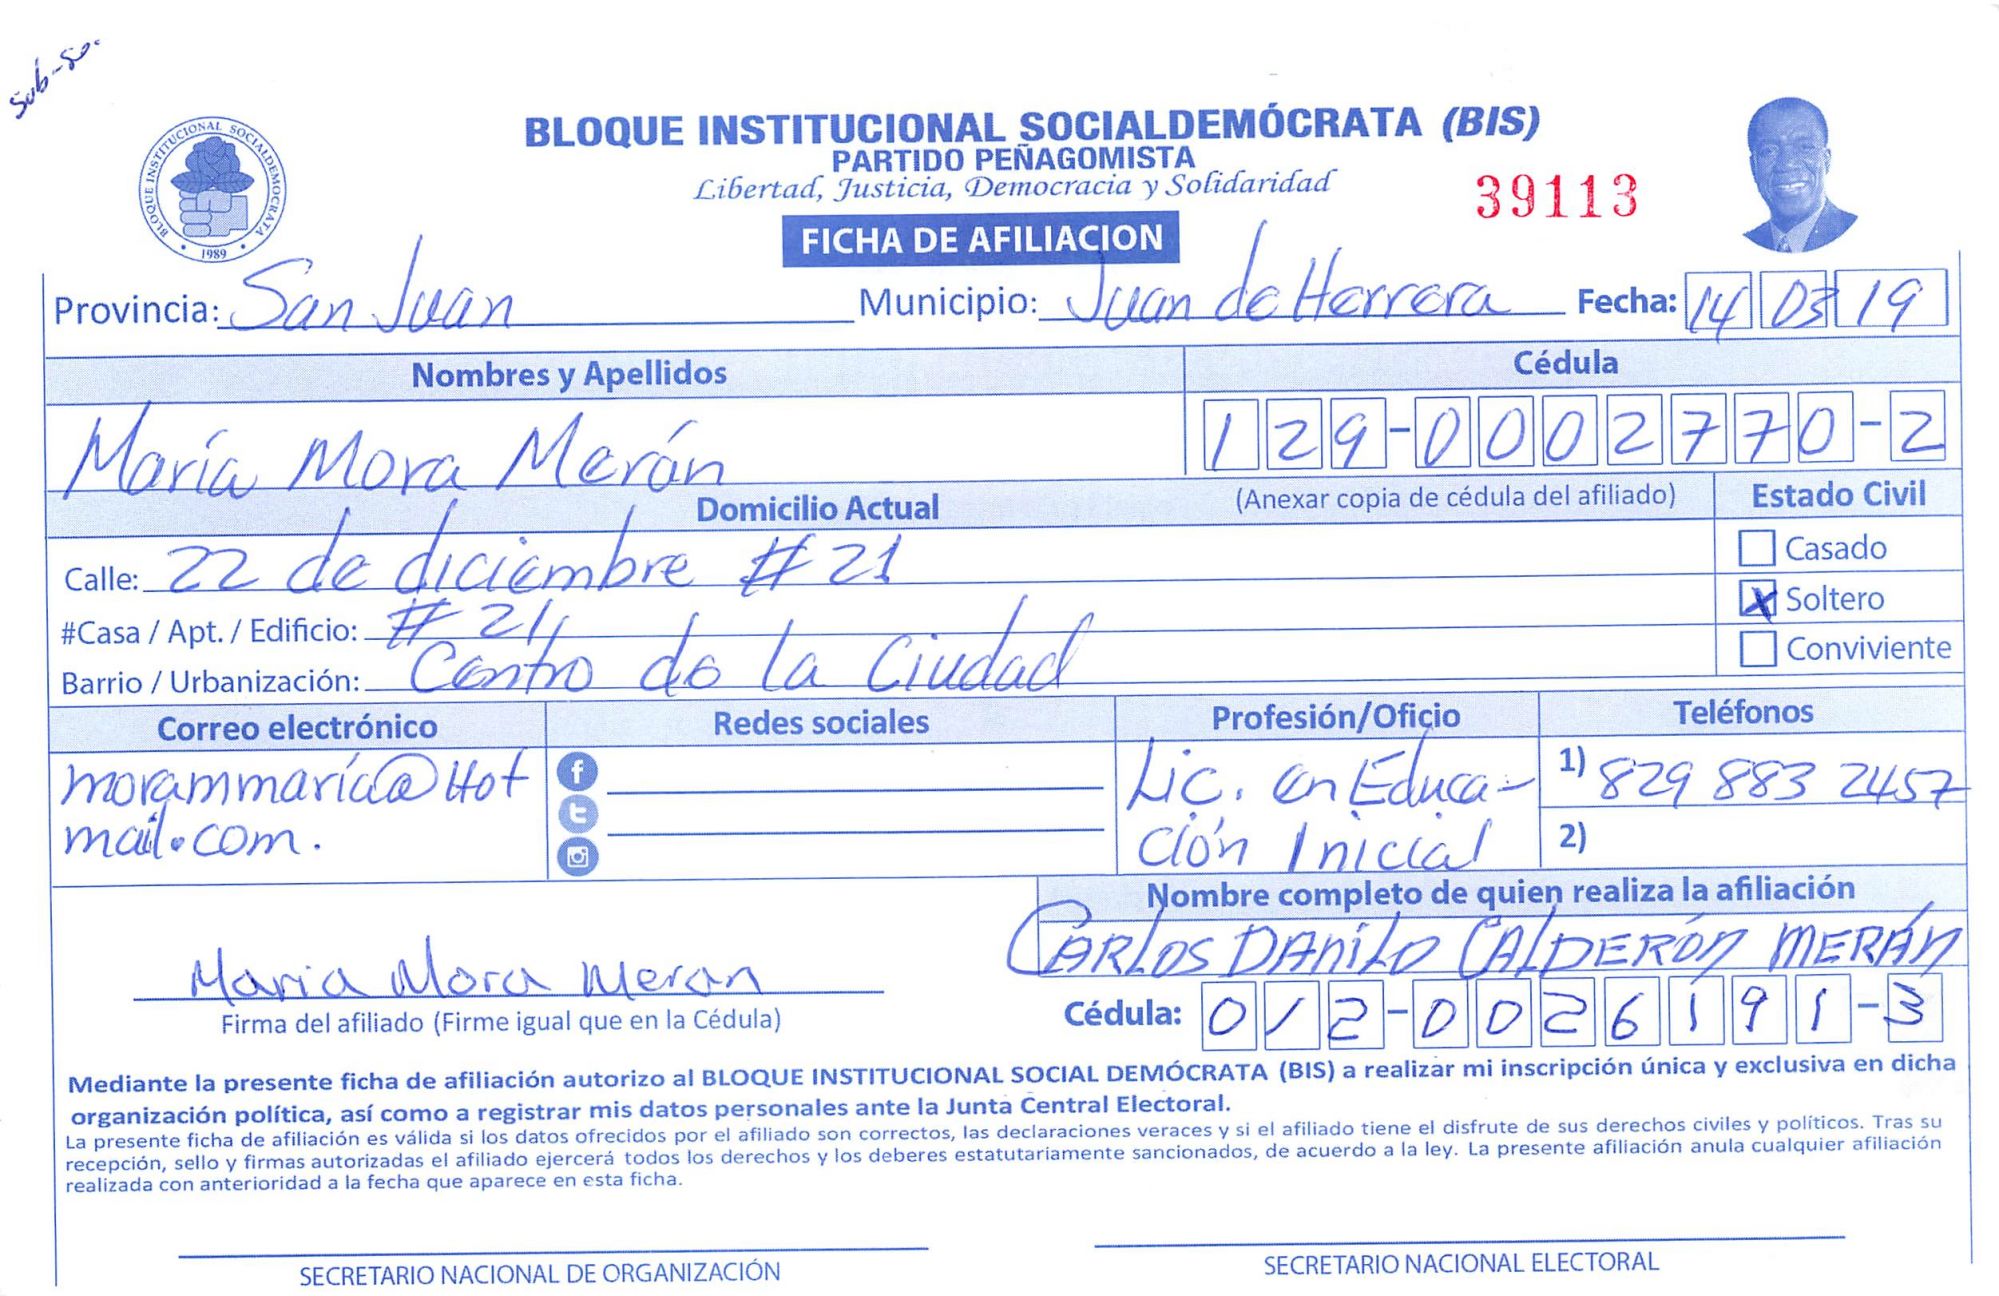 Sub-se.
BLOQUE INSTITUCIONAL SOCIALDEMOCRATA
1989
BLOQUE INSTITUCIONAL SOCIALDEMÓCRATA (BIS)
PARTIDO PEÑAGOMISTA
Libertad, Justicia, Democracia y Solidaridad
39113
FICHA DE AFILIACION
Provincia: San Juan Municipio: Juan de Herrera Fecha: 14 03 19
Nombres y Apellidos Cédula
María Mora Merán 129-0002770-2
Domicilio Actual (Anexar copia de cédula del afiliado) Estado Civil
Calle: 22 de diciembre #21 Casado
#Casa / Apt. / Edificio: #21, X Soltero
Barrio / Urbanización: Centro de la Ciudad Conviviente
Correo electrónico Redes sociales Profesión/Oficio Teléfonos
morammaría@Hot Lic. en Educa- 1) 829 883 2457
mail.com. ción Inicial 2)
Nombre completo de quien realiza la afiliación
CARLOS DANILO CALDERÓN MERÁN
Maria Mora Meran
Firma del afiliado (Firme igual que en la Cédula) Cédula: 012-0026191-3
Mediante la presente ficha de afiliación autorizo al BLOQUE INSTITUCIONAL SOCIAL DEMÓCRATA (BIS) a realizar mi inscripción única y exclusiva en dicha
organización política, así como a registrar mis datos personales ante la Junta Central Electoral.
La presente ficha de afiliación es válida si los datos ofrecidos por el afiliado son correctos, las declaraciones veraces y si el afiliado tiene el disfrute de sus derechos civiles y políticos. Tras su
recepción, sello y firmas autorizadas el afiliado ejercerá todos los derechos y los deberes estatutariamente sancionados, de acuerdo a la ley. La presente afiliación anula cualquier afiliación
realizada con anterioridad a la fecha que aparece en esta ficha.
SECRETARIO NACIONAL DE ORGANIZACIÓN SECRETARIO NACIONAL ELECTORAL